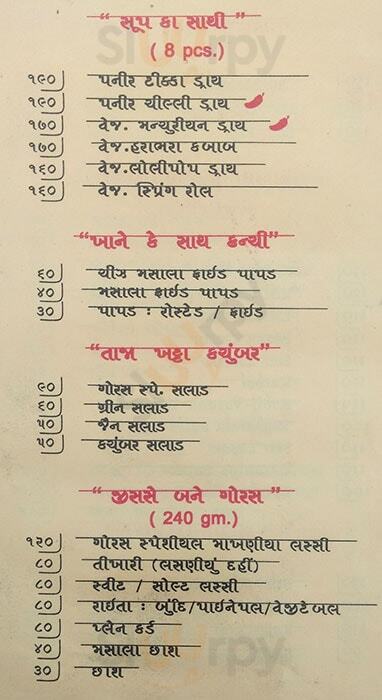 “સૂપ કા સાથી”
( 8 pcs.)
૧૯૦ પનીર ટીક્કા ડ્રાય
૧૯૦ પનીર ચીલ્લી ડ્રાય
૧૭૦ વેજ. મન્ચુરીયન ડ્રાય
૧૭૦ વેજ.હરાભરા કબાબ
૧૬૦ વેજ.લોલીપોપ ડ્રાય
૧૬૦ વેજ. સ્પ્રિંગ રોલ
“ખાને કે સાથ ક્રન્ચી”
૬૦ ચીઝ મસાલા ફ્રાઇડ પાપડ
૪૦ મસાલા ફ્રાઇડ પાપડ
૩૦ પાપડ : રોસ્ટેડ / ફ્રાઇડ
“તાજા ખટ્ટા કચુંબર”
૯૦ ગોરસ સ્પે. સલાડ
૬૦ ગ્રીન સલાડ
૫૦ જૈન સલાડ
૫૦ કચુંબર સલાડ
“ જીસસે બને ગોરસ”
( 240 gm.)
૧૨૦ ગોરસ સ્પેશીયલ માખણીયા લસ્સી
૮૦ તીખારી (લસણીયું દહીં)
૮૦ સ્વીટ / સોલ્ટ લસ્સી
૮૦ રાઈતા : બુંદિ/પાઇનેપલ/વેજીટેબલ
૮૦ પ્લેન કર્ડ
૪૦ મસાલા છાશ
૩૦ છાશ